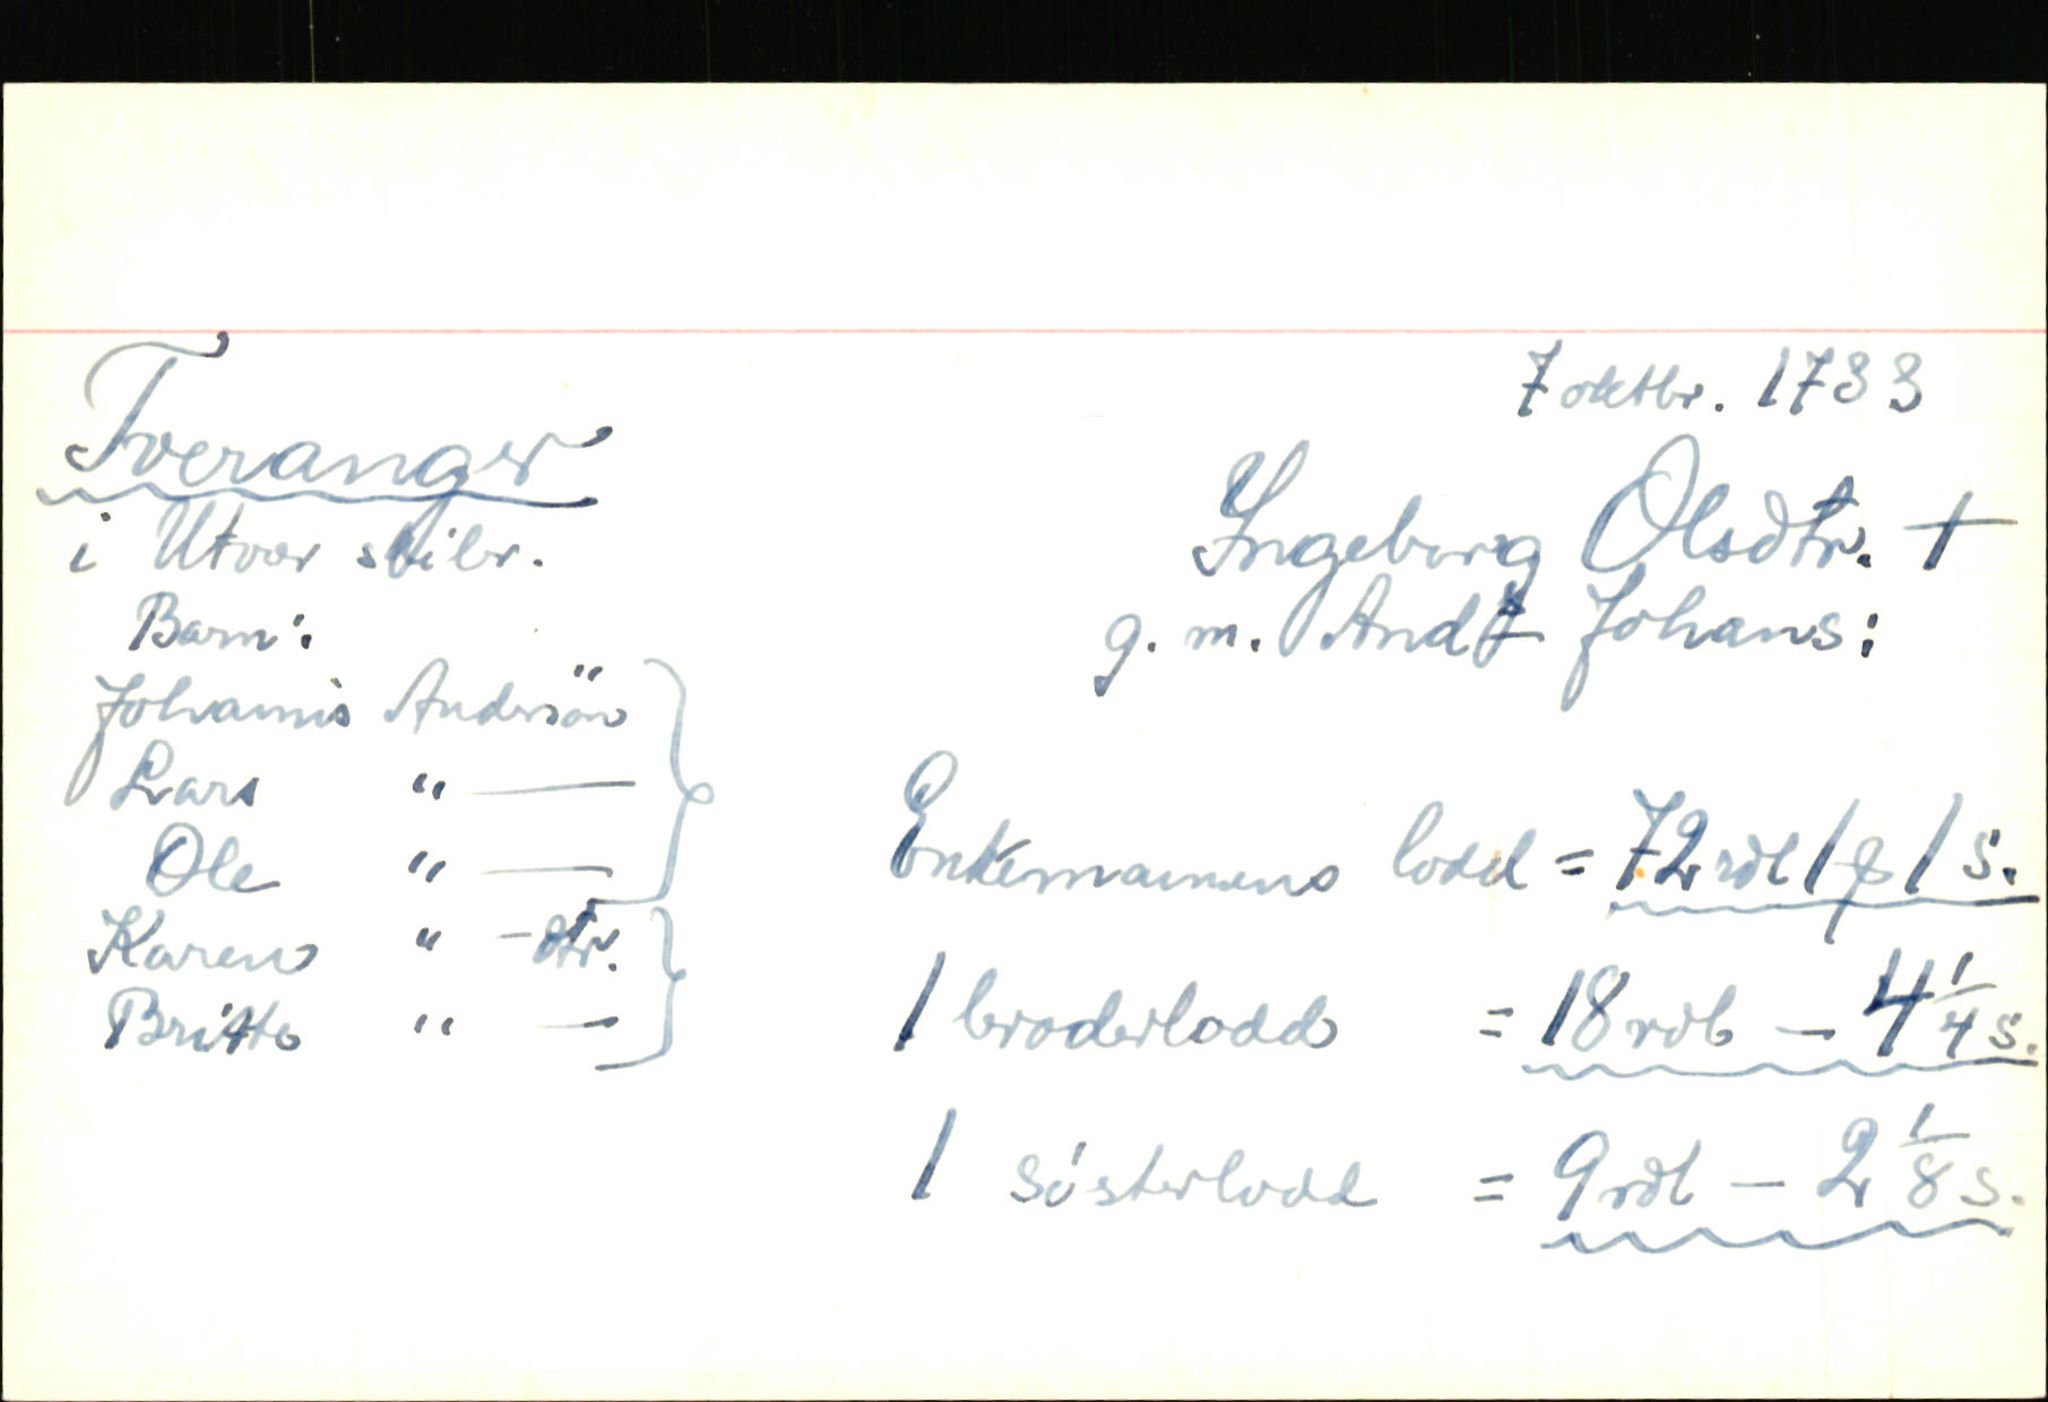 7 oktbr. 1733
Tveranger
i Utvær skibr.
Ingeborg Olsdtr. †
g. m. And: Johans:
Barn:
Johannis Andersøn
Lars " —
Ole " —
Karen " - dtr.
Britte " —
Enkemannens lodd = 72 rdl 1 ß 1 s.
1 broderlodd = 18 rdl - 4 1/4 s.
1 søsterlodd = 9 rdl - 2 1/8 s.